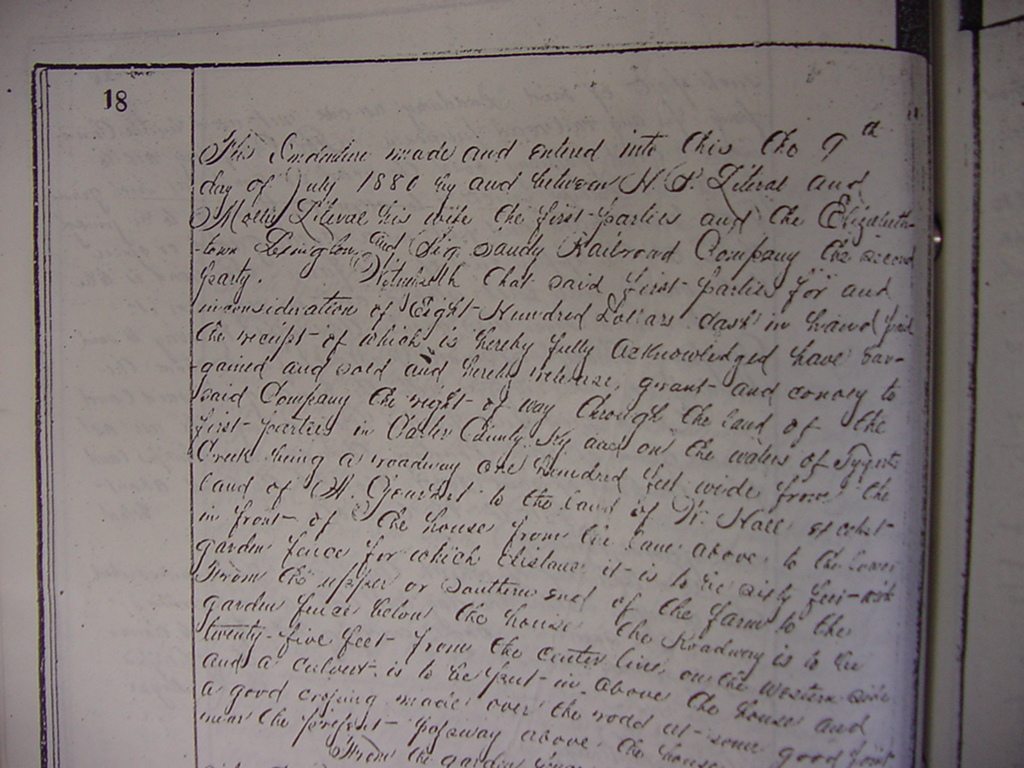 18
This Indenture made and entered into this the 9th
day of July 1880 by and between H. P. Literal and
Mollie Literal his wife the first parties and the Elizabeth-
town Lexington and Big Sandy Railroad Company the second
party. Witnesseth that said first parties for and
inconsideration of Eight Hundred Dollars cash in hand paid
the receipt of which is hereby fully acknowledged have bar-
gained and sold and hereby release, grant and convey to
said Company the right of way through the land of the
first parties in Carter County Ky and on the waters of Tygarts
Creek being a roadway one hundred feet wide from the
land of to the land of W. Hall except
in front of the house from the lane above to the lower
garden fence for which distance it is to be sixty feet wide
From the upper or southern end of the farm to the
garden fence below the house the Roadway is to be
twenty-five feet from the center line on the western side
and a culvert is to be put in above the house and
a good crossing made over the road at some good point
near the present passway above the house
From the garden